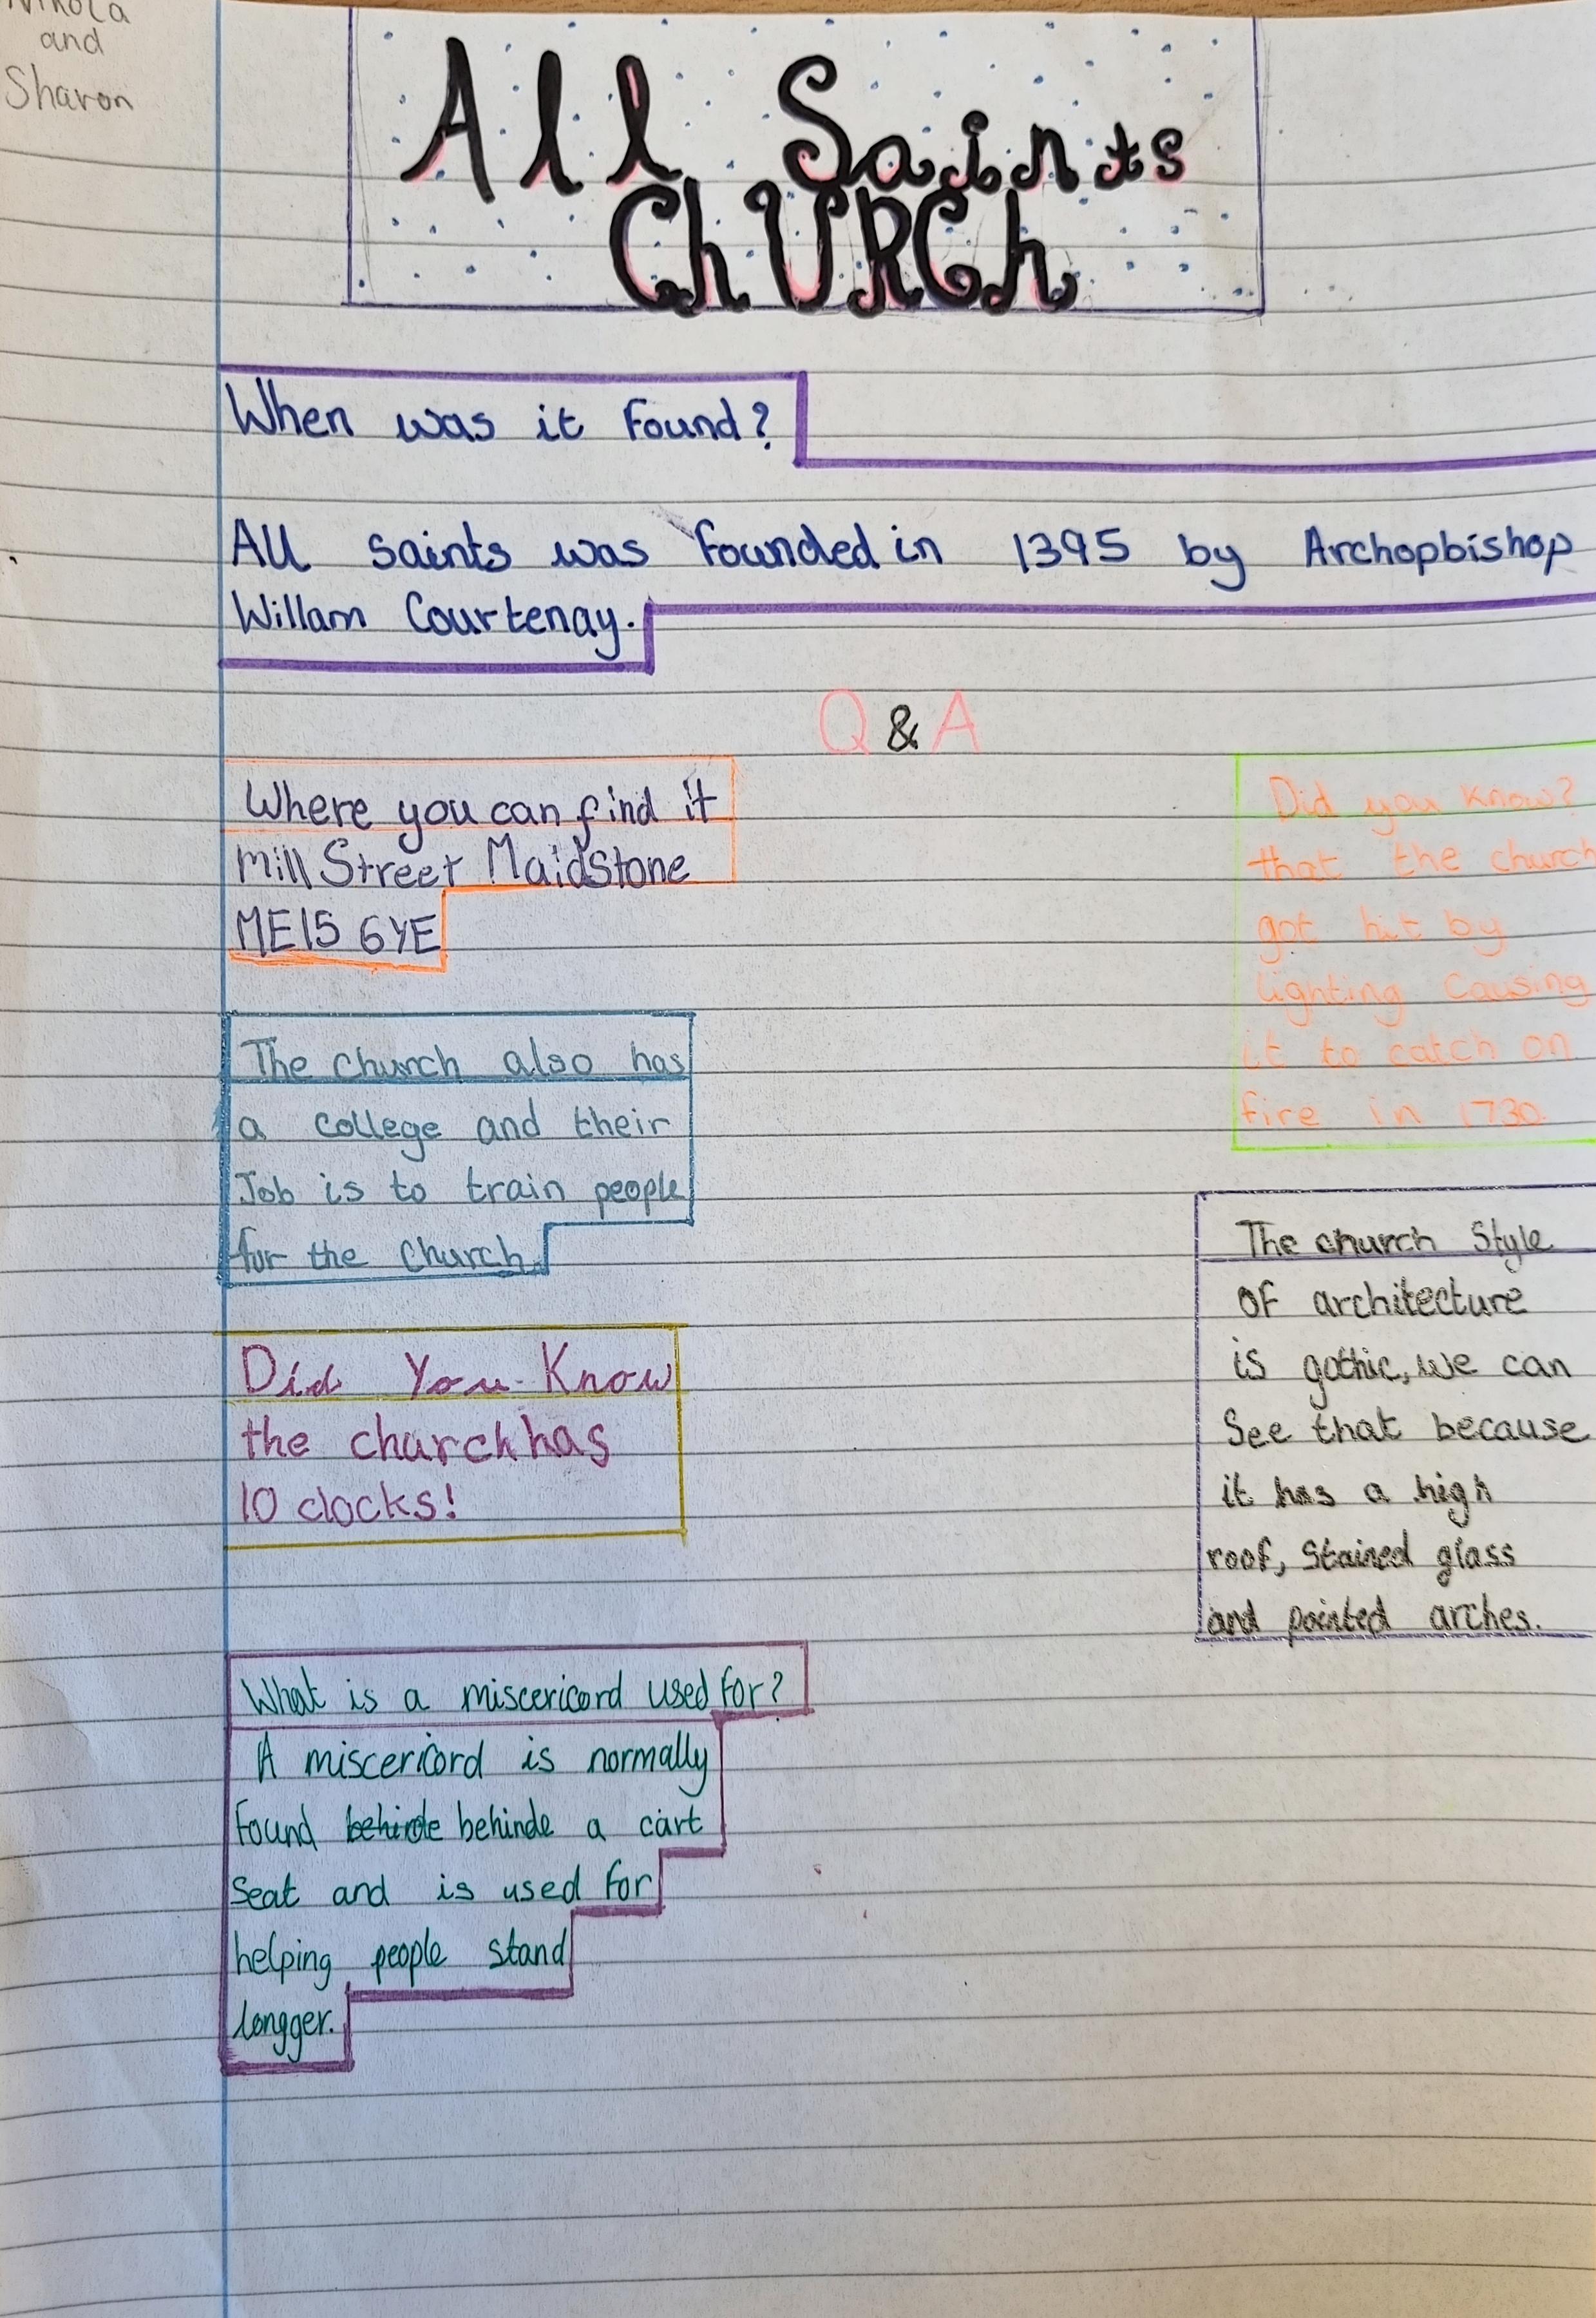 Nikola
and
Sharon
All Saints
ChURCh
When was it Found?
All saints was founded in 1395 by Archopbishop
Willam Courtenay.
Q & A
Where you can find it
Mill Street Maidstone
ME15 6YE
Did you know?
that the church
got hit by
lighting causing
it to catch on
fire in 1730
The church also has
a college and their
Job is to train people
for the Church.
The church Style
of architecture
is gothic, we can
See that because
it has a high
roof, stained glass
and pointed arches.
Did You Know
the church has
10 clocks!
What is a miscericord used for?
A miscericord is normally
found behinde behinde a cart
Seat and is used for
helping people stand
longger.